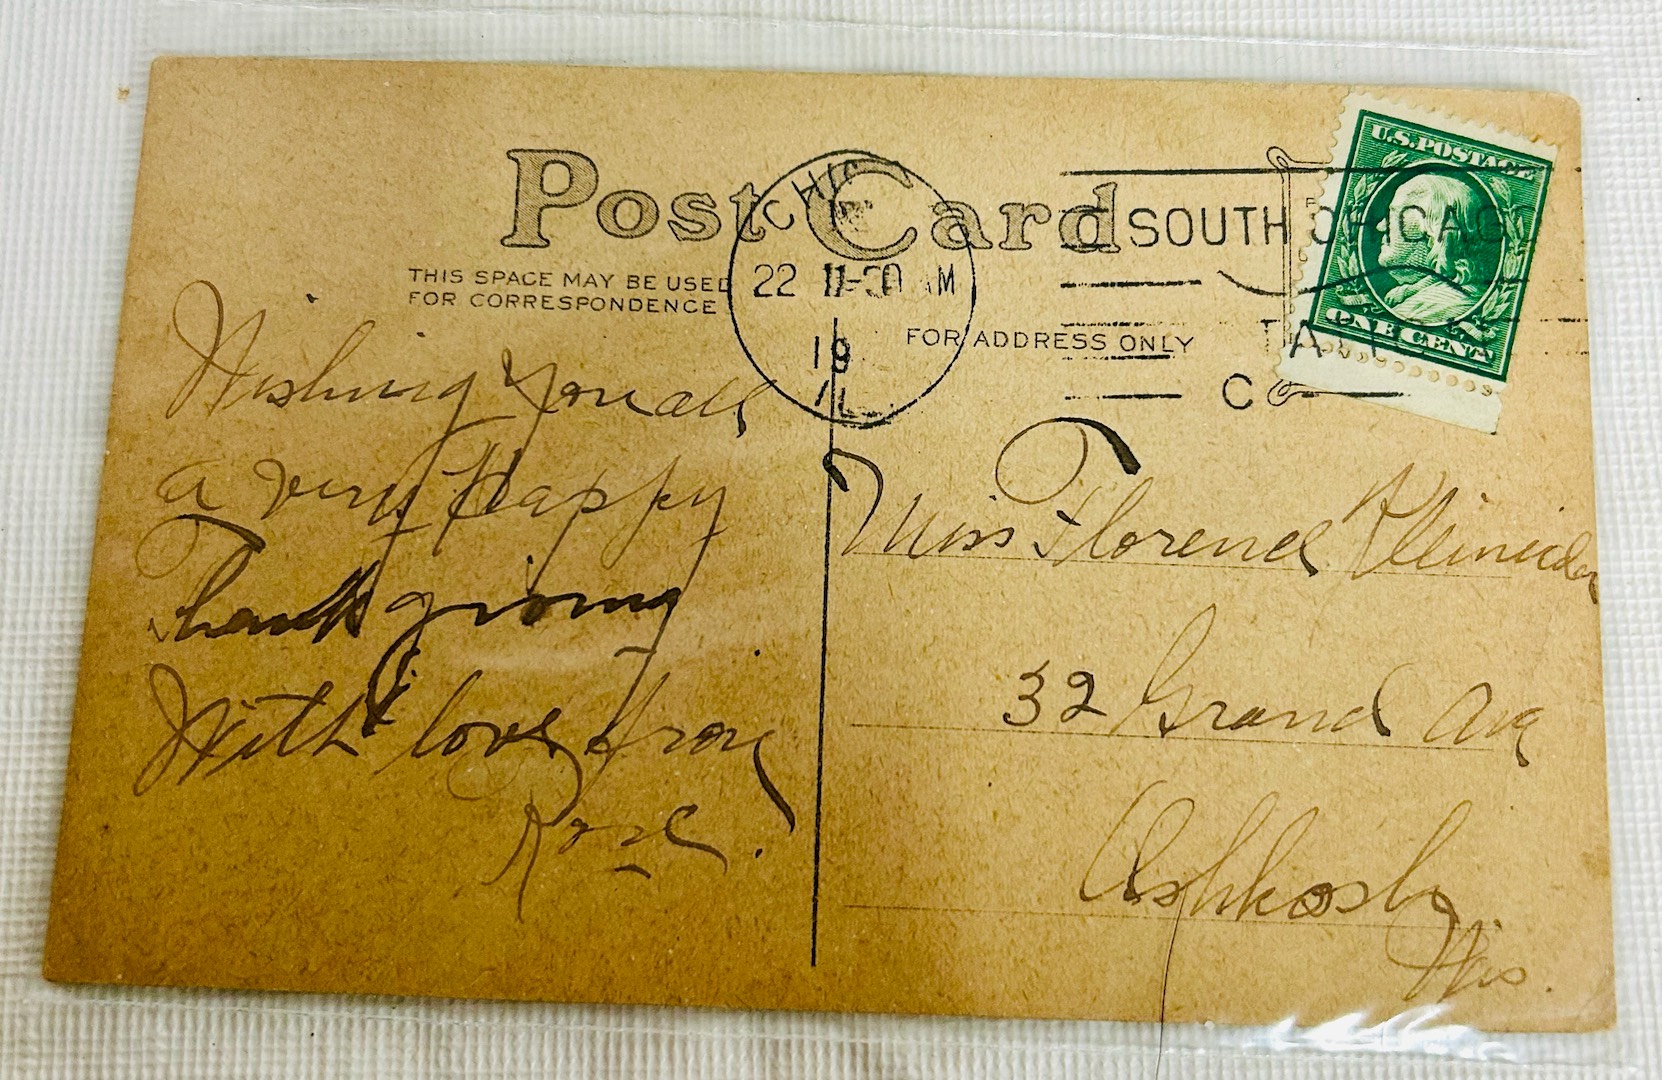 Post Card
THIS SPACE MAY BE USED
FOR CORRESPONDENCE
FOR ADDRESS ONLY
CHIC
22 11-30 AM
19
IL
SOUTH CHICAGO
C
U.S. POSTAGE
ONE CENT
Wishing you all
a very Happy
Thanksgiving
With love from
Rose.
Miss Florence
32 Grand Ave
Oshkosh
Wis.